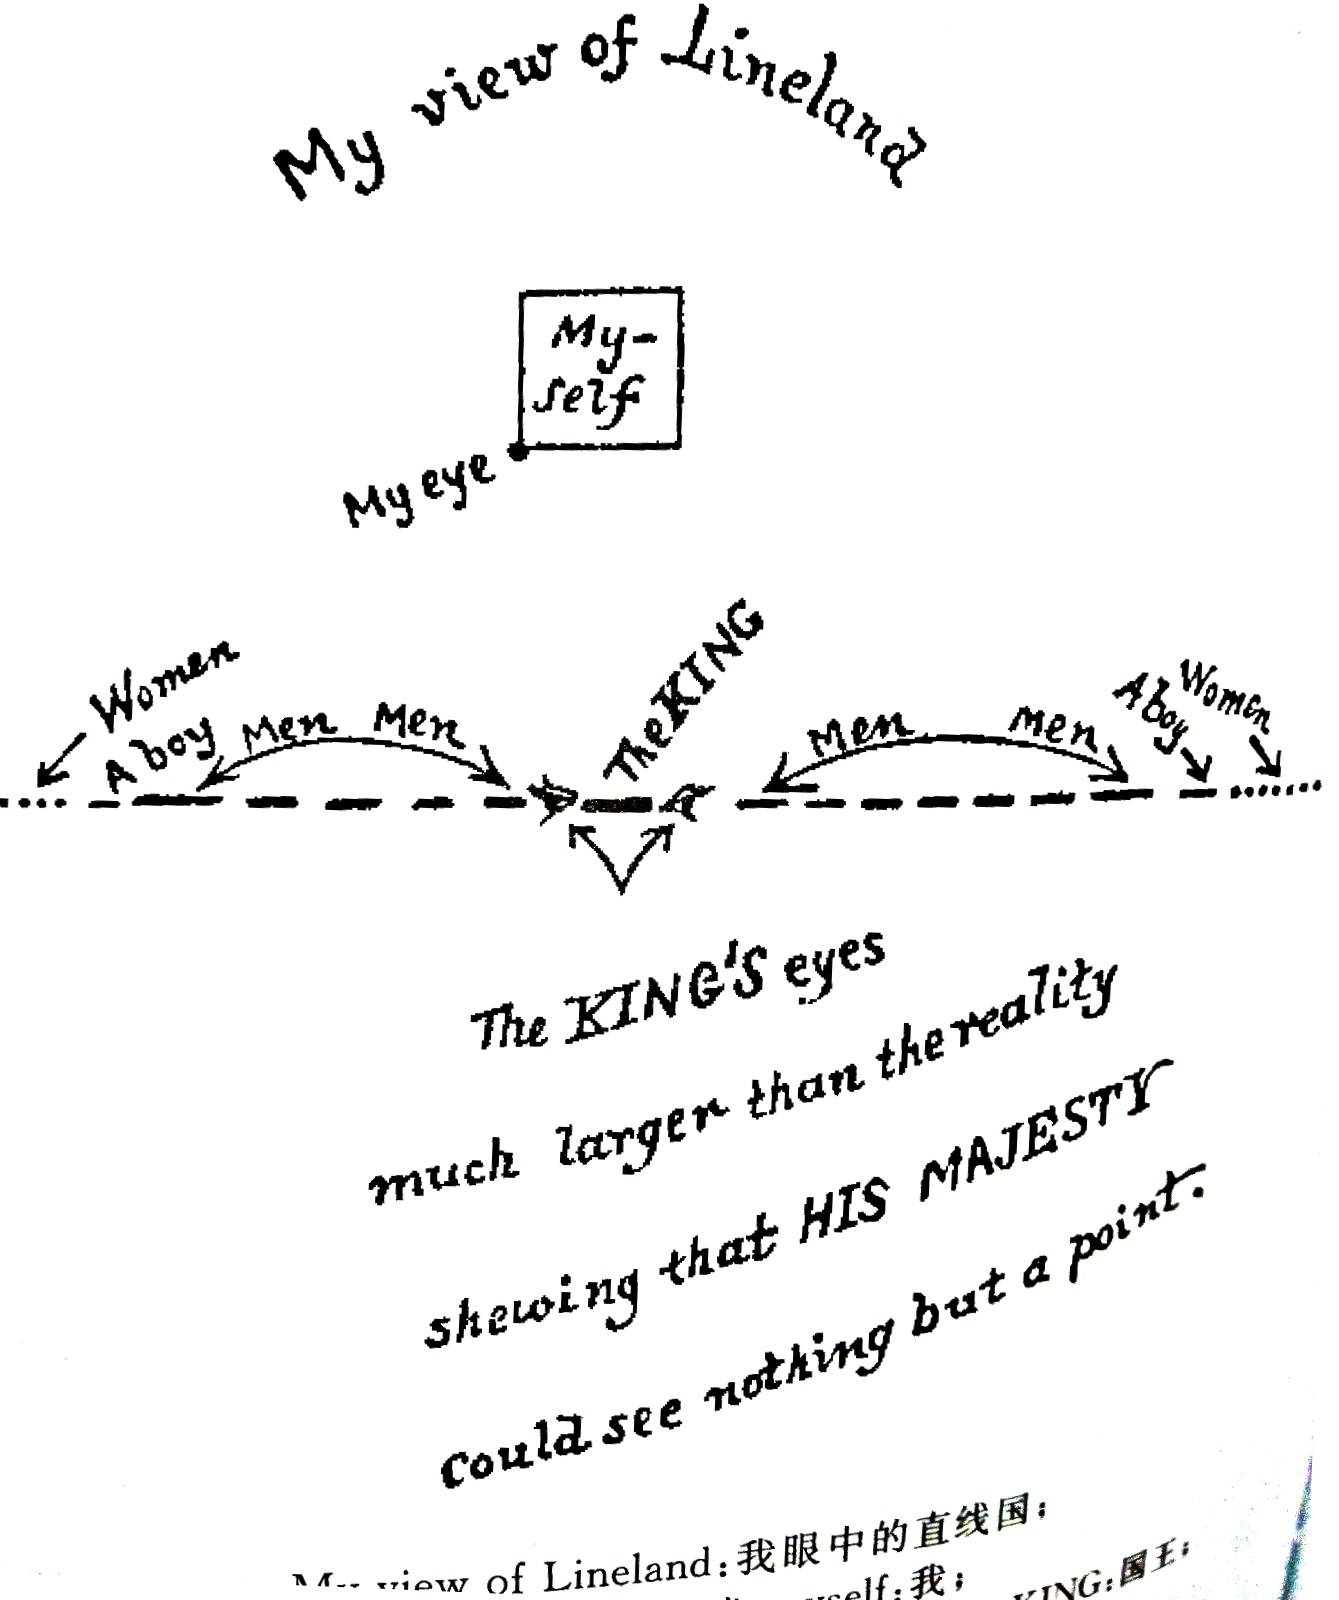 My view of Lineland
My-
self
My eye
The KING
Women
A boy
Men Men
Men men
A boy
Women
The KING'S eyes
much larger than the reality
shewing that HIS MAJESTY
could see nothing but a point.
My view of Lineland:我眼中的直线国;
我; KING:国王;